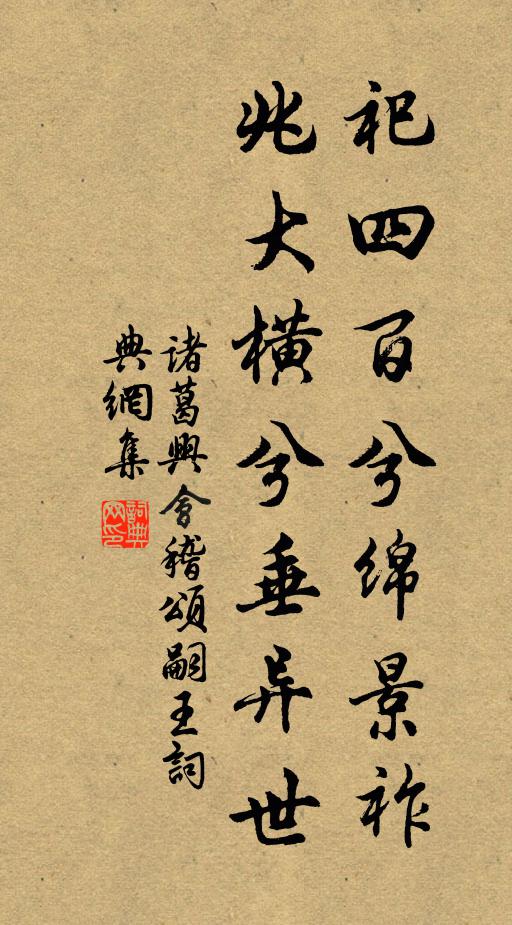 祀四百兮绵景祚
兆大横兮垂异世
诸葛興會稽頌嗣王詞
典網集
詞典
网印